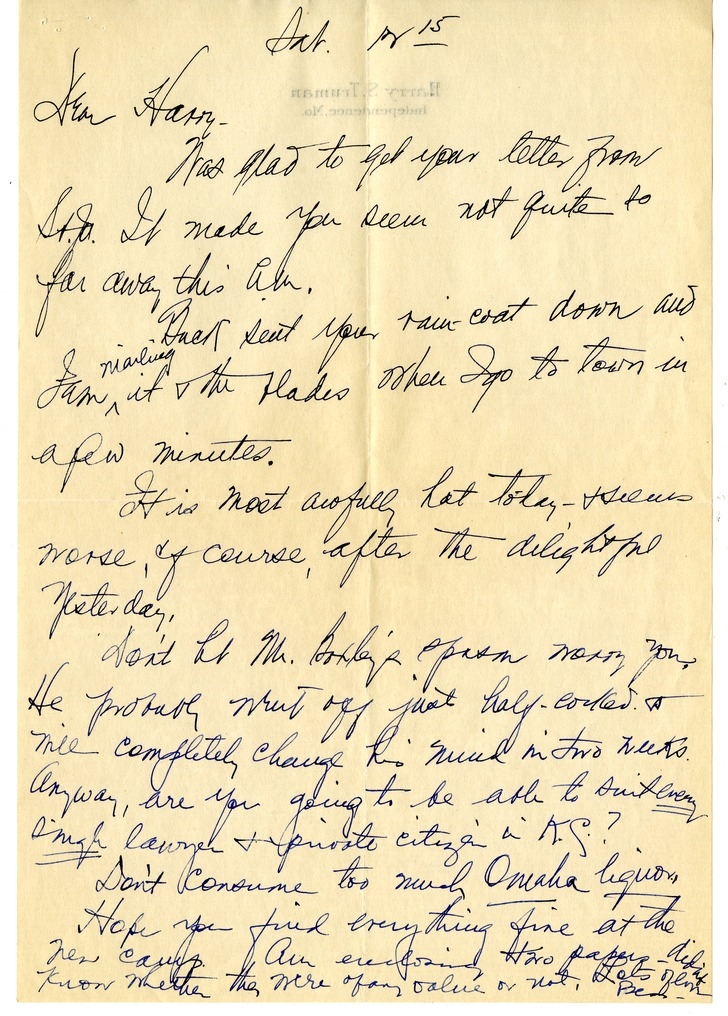 Sat. 15
Harry S. Truman
Independence, Mo.
Dear Harry-
Was glad to get your letter from
St. J. It made you seem not quite so
far away this a.m.
Buck sent your rain-coat down and
I am mailing it & the blades when I go to town in
a few minutes.
It is most awfully hot today - & seems
worse, of course, after the delightful
yesterday.
Don't let Mr. Boxley's spasm worry you.
He probably went off just half-cocked &
will completely change his mind in two weeks.
Anyway, are you going to be able to suit every
single lawyer & private citizen in K.C.?
Don't consume too much Omaha liquor.
Hope you find everything fine at the
new camp. Am enclosing two papers - didn't
know whether they were of any value or not. Lots of love
Bess-